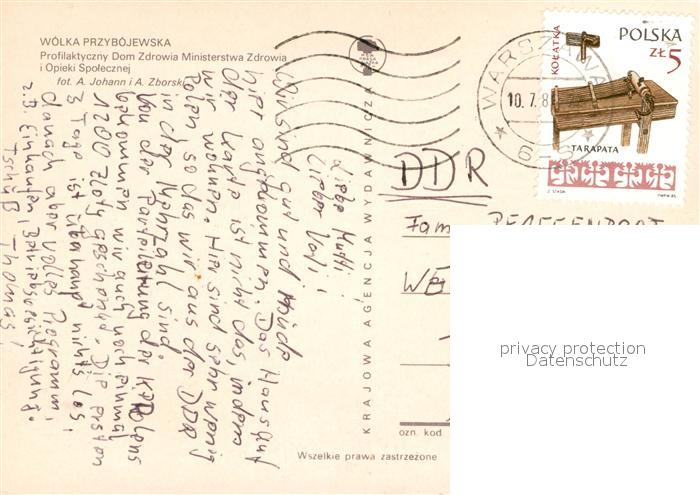 WÓLKA PRZYBÓJEWSKA
Profilaktyczny Dom Zdrowia Ministerstwa Zdrowia
i Opieki Społecznej
fot. A. Johann i A. Zborski
Liebe Mutti,
Lieber Vati!
Wir sind gut und müde
hier angekommen. Das Haus auf
der Karte ist nicht das, indem
wir wohnen. Hier sind sehr wenig
Polen, so das wir aus der DDR
in der Mehrzahl sind.
Von der Parteileitung der
bekommen wir auch noch einmal
1200 Zloty geschenkt. Die ersten
3 Tage ist überhaupt nichts los,
danach aber volles Programm,
z.B. Einkaufen, Betriebsbesichtigung.
Tschüß Thomas!
KRAJOWA AGENCJA WYDAWNICZA
WARSZAWA
10.7.8
KOŁATKA
POLSKA
ZŁ 5
TARAPATA
DDR
Fam
WE
ozn. kod
Wszelkie prawa zastrzeżone
privacy protection
Datenschutz